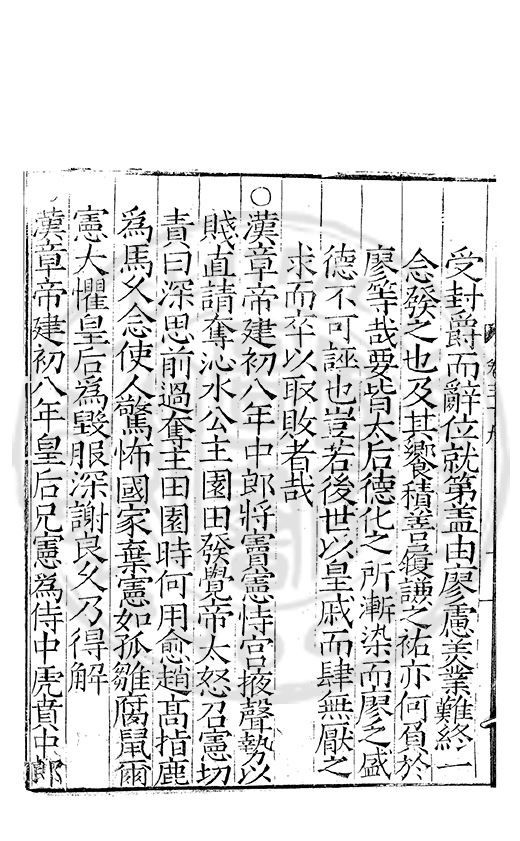 受封爵而辭位就第盖由廖慮羙業難終一
念發之也及其饗積善履謙之祐亦何負於
廖等哉要皆太后德化之所漸染而廖之盛
德不可誣也豈若後世以皇戚而肆無厭之
求而卒以取敗者哉
○漢章帝建初八年中郎將竇憲恃宫掖聲勢以
賤直請奪沁水公主園田發覺帝大怒召憲切
責曰深思前過奪主田園時何用愈趙高指鹿
為馬久念使人驚怖國家棄憲如孤雛腐䑕爾
憲大懼皇后為毀服深謝良久乃得解
漢章帝建初八年皇后兄憲為侍中虎賁中郎